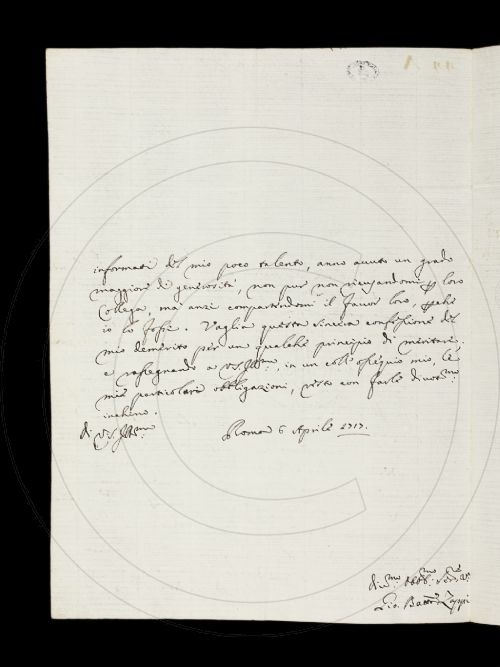 informati del mio poco talento, anno avuto un grado
maggiore di generosità, non pur non ricusandomi loro
Collega, ma anzi compartendomi il favor loro, perche
io lo fossi. Vaglia questa sincera confessione del
mio demerito per un qualche principio di meritare.
e rassegnando a V.S. Illma, in un coll' ossequio mio, le
mie particolari obbligazioni, resto con farle divotmo
inchino.
di V.S. Illma Roma 6 Aprile 1717.
divmo obblmo
Gio. Battta Zappi